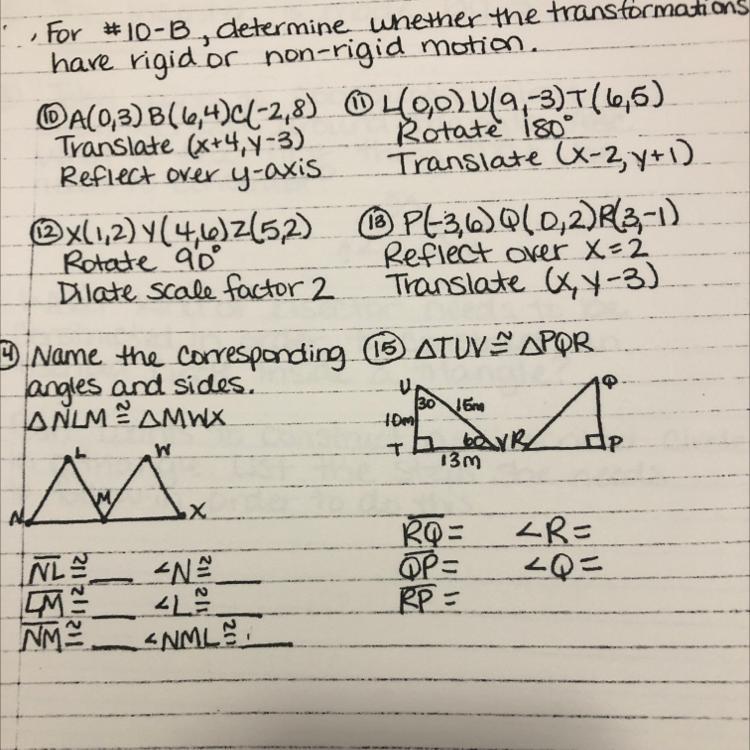 For #10-13, determine whether the transformations
have rigid or non-rigid motion.
⑩ A(0,3) B(6,4) C(-2,8)
Translate (x+4, y-3)
Reflect over y-axis
⑪ L(0,0) U(9,-3) T(6,5)
Rotate 180°
Translate (x-2, y+1)
⑫ X(1,2) Y(4,6) Z(5,2)
Rotate 90°
Dilate scale factor 2
⑬ P(-3,6) Q(0,2) R(3,-1)
Reflect over x=2
Translate (x, y-3)
4 Name the corresponding
angles and sides.
△NLM ≅ △MWX
L W
N M X
NL ≅ __ ∠N ≅ __
LM ≅ __ ∠L ≅ __
NM ≅ __ ∠NML ≅ __
⑮ △TUV ≅ △PQR
U Q
30 15m
10m
T 60 V R P
13m
RQ = ∠R =
QP = ∠Q =
RP =